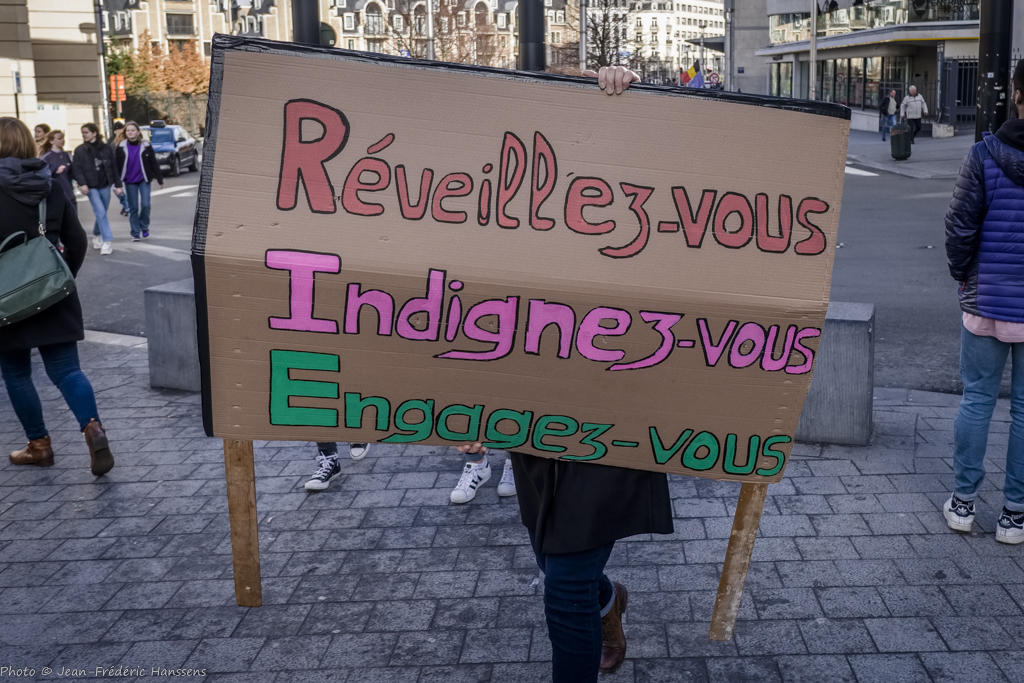 Réveillez-vous
Indignez-vous
Engagez-vous
Photo © Jean-Frédéric Hanssens